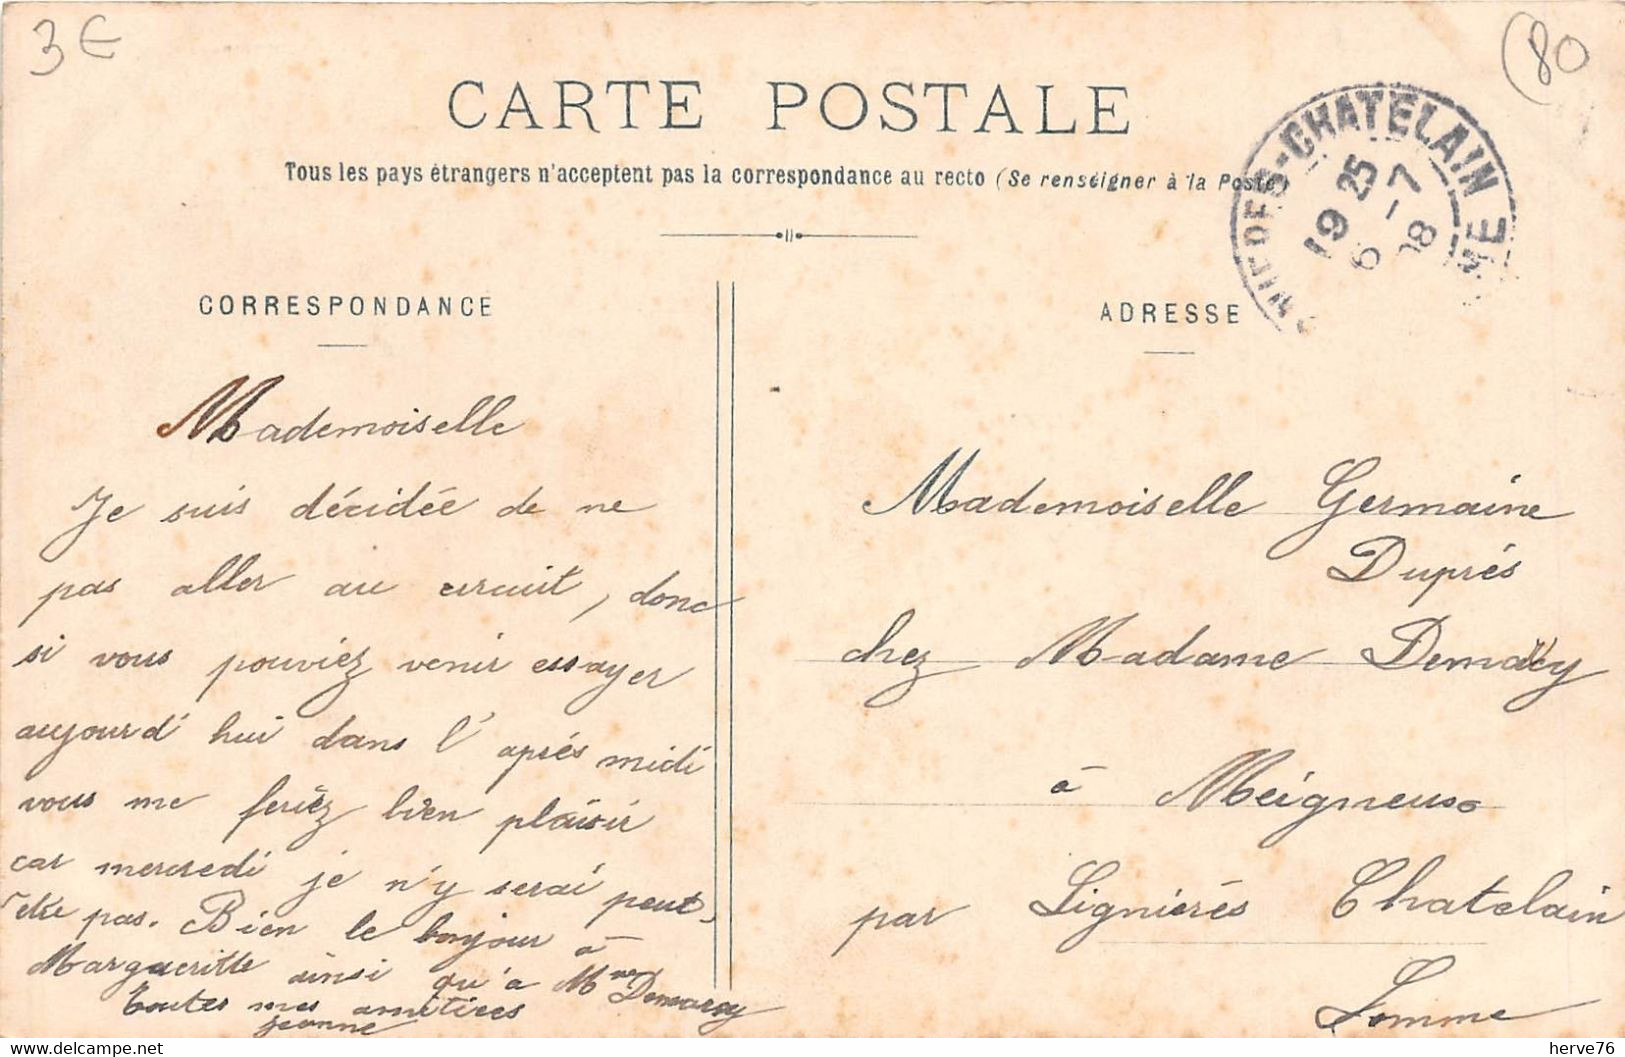 3€
(80
CARTE POSTALE
Tous les pays étrangers n'acceptent pas la correspondance au recto (Se renseigner à la Poste)
-CHATELAIN
19 25
6 -7
08
CORRESPONDANCE
Mademoiselle
Je suis décidée de ne
pas aller au circuit, donc
si vous pouviez venir essayer
aujourd'hui dans l'après midi
vous me feriez bien plaisir
car mercredi je n'y serai peut-
être pas. Bien le bonjour à
Margueritte ainsi qu'à Mme Demarcy
Toutes mes amitiées
Jeanne
ADRESSE
Mademoiselle Germaine
Duprés
chez Madame
à Méigneux
par Lignières Chatelain
Somme
herve76